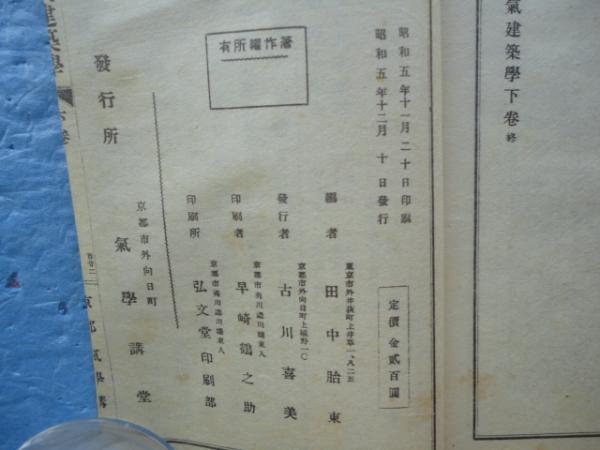 氣建築學下卷 終
昭和五年十一月二十日印刷
昭和五年十二月十日發行
著作權所有
定價金貳百圓
東京市外井荻町上井草一、九二五
編者 田中胎東
京都市外向日町上植野一〇
發行者 古川喜美
京都市夷川通川端東入
印刷者 早崎鶴之助
京都市夷川通川端東入
印刷所 弘文堂印刷部
發行所
京都市外向日町
氣學講堂
建築學 下卷
百廿二
京都 氣學講